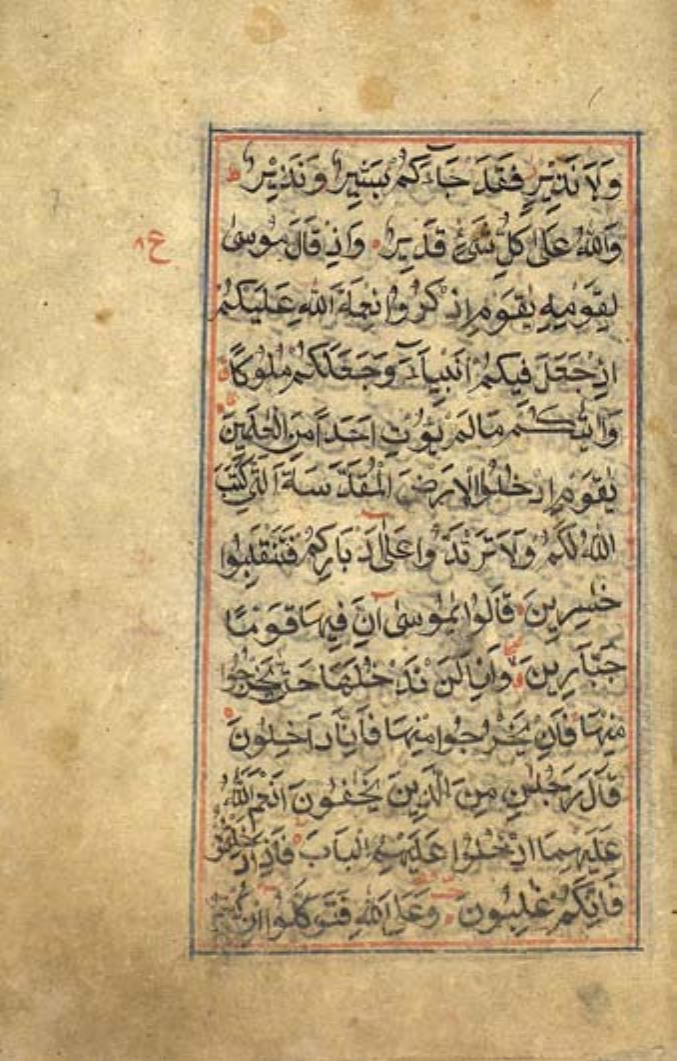 وَلَا نَذِيرٍ فَقَدْ جَاءَكُمْ بَشِيرٌ وَنَذِيرٌ ط
وَاللهُ عَلَى كُلِّ شَيْءٍ قَدِيرٌ وَاِذْ قَالَ مُوسٰى
ع ٨
لِقَوْمِهِ يٰقَوْمِ اذْكُرُوا نِعْمَةَ اللهِ عَلَيْكُمْ
اِذْ جَعَلَ فِيكُمْ اَنْبِيَاءَ وَجَعَلَكُمْ مُلُوكًا
وَاٰتٰىكُمْ مَا لَمْ يُؤْتِ اَحَدًا مِنَ الْعٰلَمِينَ
يٰقَوْمِ ادْخُلُوا الْاَرْضَ الْمُقَدَّسَةَ الَّتِي كَتَبَ
اللهُ لَكُمْ وَلَا تَرْتَدُّوا عَلٰى اَدْبَارِكُمْ فَتَنْقَلِبُوا
خٰسِرِينَ قَالُوا يٰمُوسٰى اِنَّ فِيهَا قَوْمًا
جَبَّارِينَ وَاِنَّا لَنْ نَدْخُلَهَا حَتّٰى يَخْرُجُوا
مِنْهَا فَاِنْ يَخْرُجُوا مِنْهَا فَاِنَّا دَاخِلُونَ
قَالَ رَجُلٰنِ مِنَ الَّذِينَ يَخَافُونَ اَنْعَمَ اللهُ
عَلَيْهِمَا ادْخُلُوا عَلَيْهِمُ الْبَابَ فَاِذَا دَخَلْتُمُوهُ
فَاِنَّكُمْ غٰلِبُونَ وَعَلَى اللهِ فَتَوَكَّلُوا اِنْ كُنْتُمْ